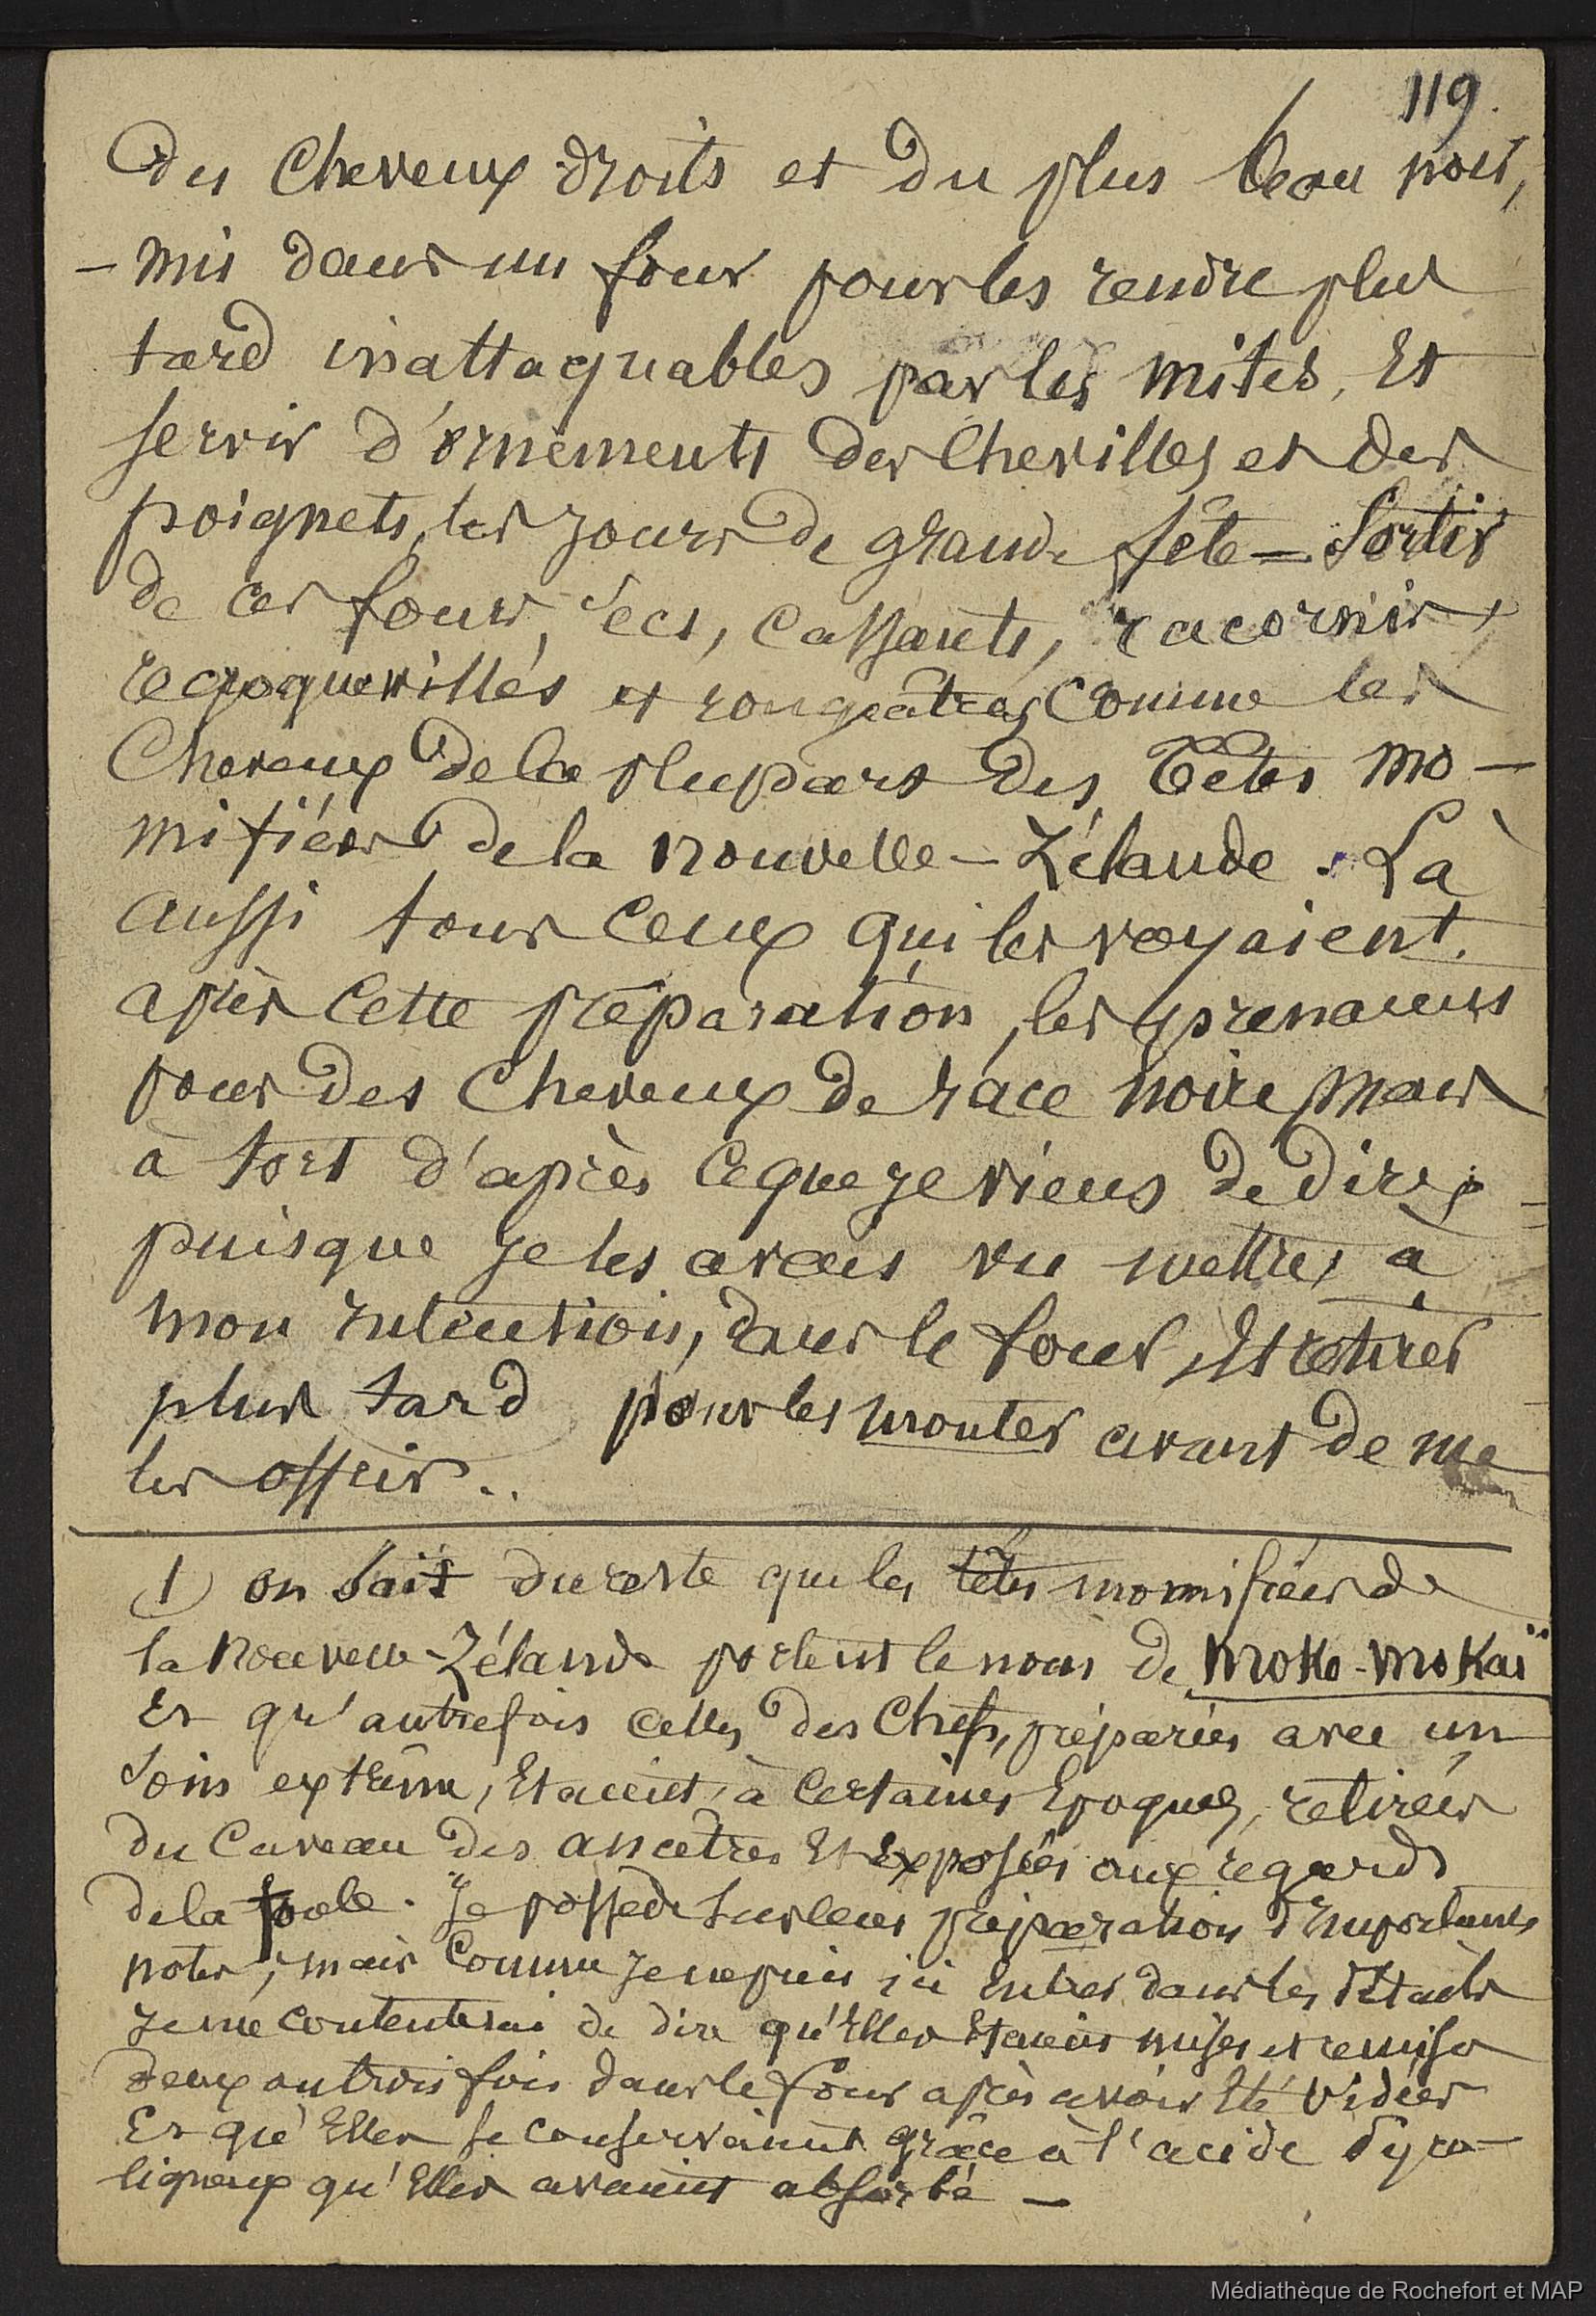 119.
des Cheveux droits et du plus beau noir,
- mis dans un four pour les rendre plus
tard inattaquables par les mites, Et
servir d'ornements des Chevilles et des
poignets, les jours de grande fête - Sortir
de ces fours, secs, cassants, racornis,
recroquevillés et rougeâtres comme les
Cheveux de la plupart des Têtes mo-
mifiées de la Nouvelle-Zélande. Là
aussi tous ceux qui les voyaient
après cette préparation, les prenaient
pour des Cheveux de race noire mais
à tort d'après ce que je viens de dire,
puisque je les avais vu mettre, à
mon intention, dans le four, Et retirer
plus tard pour les monter avant de me
les offrir..
1) on sait du reste que les têtes momifiées de
la Nouvelle-Zélande portent le nom de Moko-Mokaï
Et qu'autrefois celles des Chefs, préparées avec un
soin extrême, Etaient, à certaines Epoques, retirées
du Caveau des ancêtres Et Exposées aux regards
de la foule. Je possède sur leur préparation d'Importantes
notes, mais comme je ne puis ici Entrer dans les détails
je me contenterai de dire qu'Elles Etaient mises et remises
deux ou trois fois dans le four après avoir Eté vidées
Et qu'Elles se conservaient grâce à l'acide Pyro-
ligneux qu'Elles avaient absorbé -
Médiathèque de Rochefort et MAP